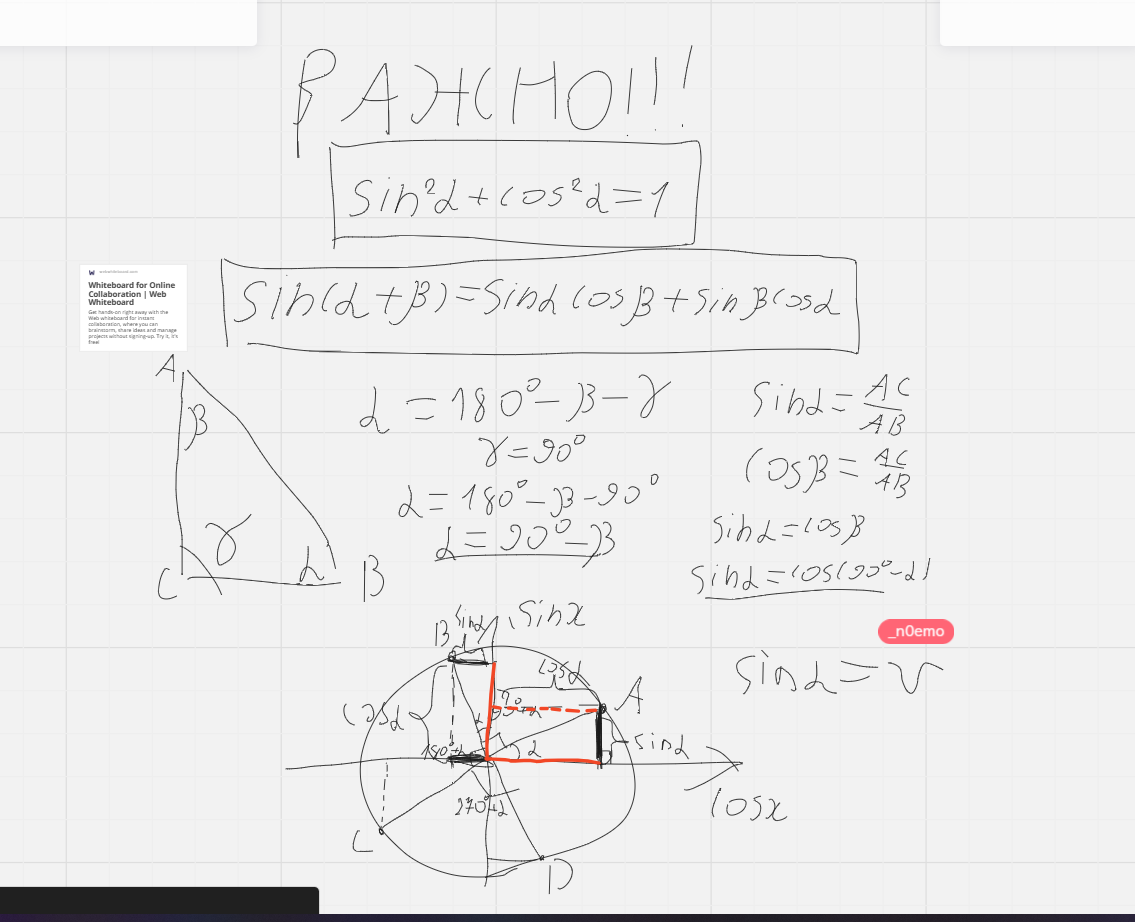 ВАЖНО!!!
sin²α + cos²α = 1
sin(α + β) = sinα cosβ + sinβ cosα
webwhiteboard.com
Whiteboard for Online
Collaboration | Web
Whiteboard
Get hands-on right away with the
Web whiteboard for instant
collaboration, where you can
brainstorm, share ideas and manage
projects without signing-up. Try it, it's
free!
A
β
γ
α
C
B
α = 180° - β - γ
γ = 90°
α = 180° - β - 90°
α = 90° - β
sinα = AC/AB
cosβ = AC/AB
sinα = cosβ
sinα = cos(90° - α)
_n0emo
sinα = √
sinx
B
sinα
cosα
A
90°+α
cosα
α
180°+α
α
sinα
270+α
cosx
C
D